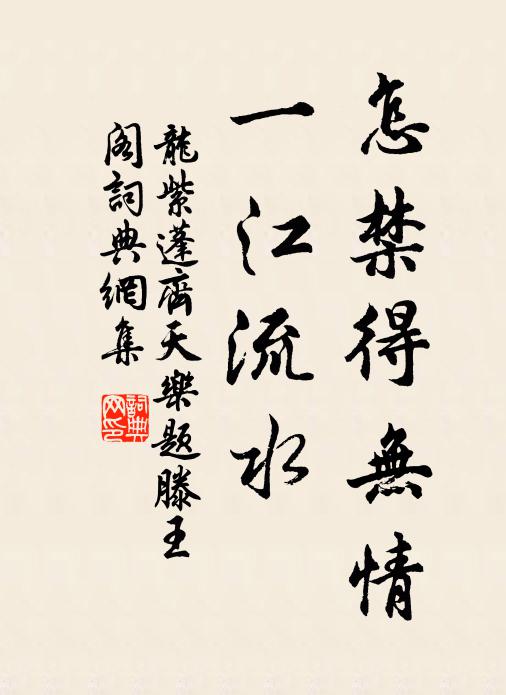 怎禁得無情
一江流水
龍紫蓬齊天樂题滕王
阁詞典網集
詞典
网印